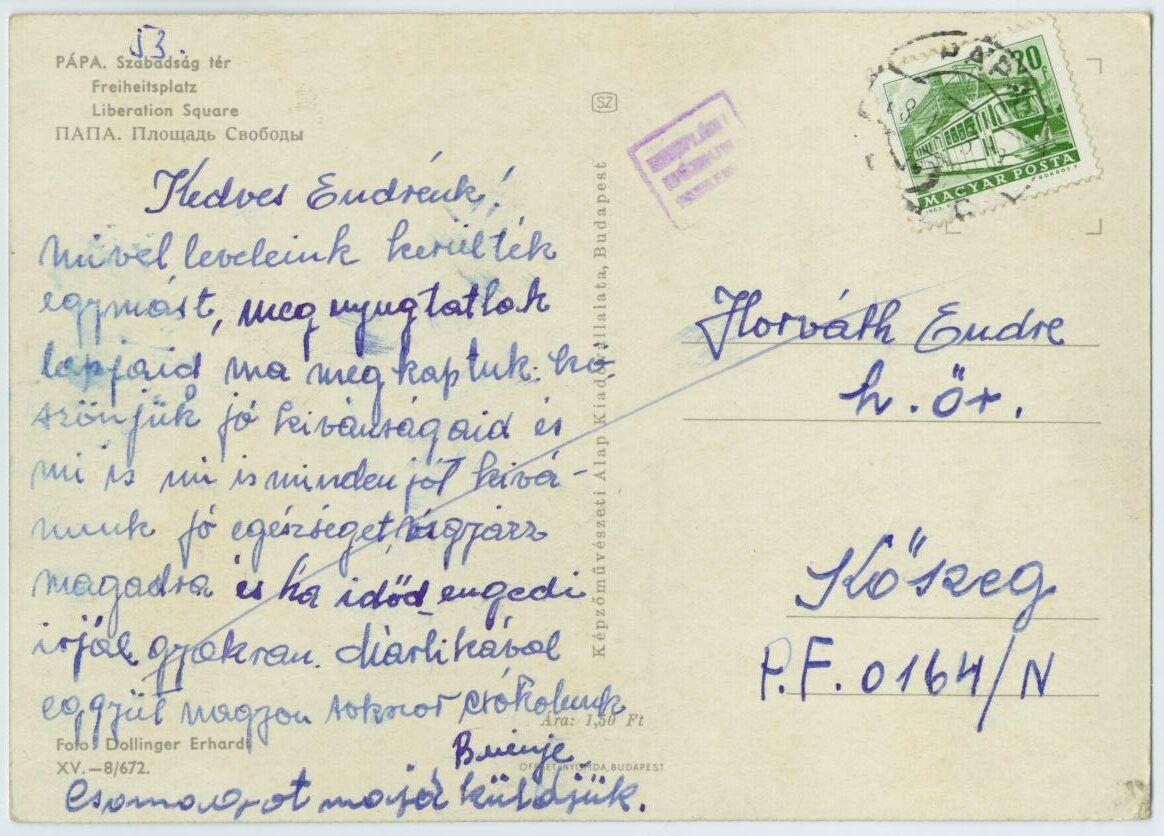 53
PÁPA. Szabadság tér
Freiheitsplatz
Liberation Square
ПАПА. Площадь Свободы
Kedves Endrénk!
mivel leveleink kerülték
egymást, meg nyugtatlak
lapjaid ma meg kaptuk. Kö-
szönjük jó kivánságaid és
mi is mi is minden jót kivá-
nunk jó egészséget, vigyázz
magadra és ha időd engedi
irjál gyakran.
eggyüt nagyon sokszor csókolunk
Foto: Dollinger Erhardt
XV.—8/672.
Csomagot majd küldjük.
Képzőművészeti Alap Kiadóvállalata, Budapest
Ára: 1,50 Ft
OFFSETNYOMDA, BUDAPEST
SZ
PÁPA
20 f
MAGYAR POSTA
Horváth Endre
h. őr.
Kőszeg
P.F. 0164/N